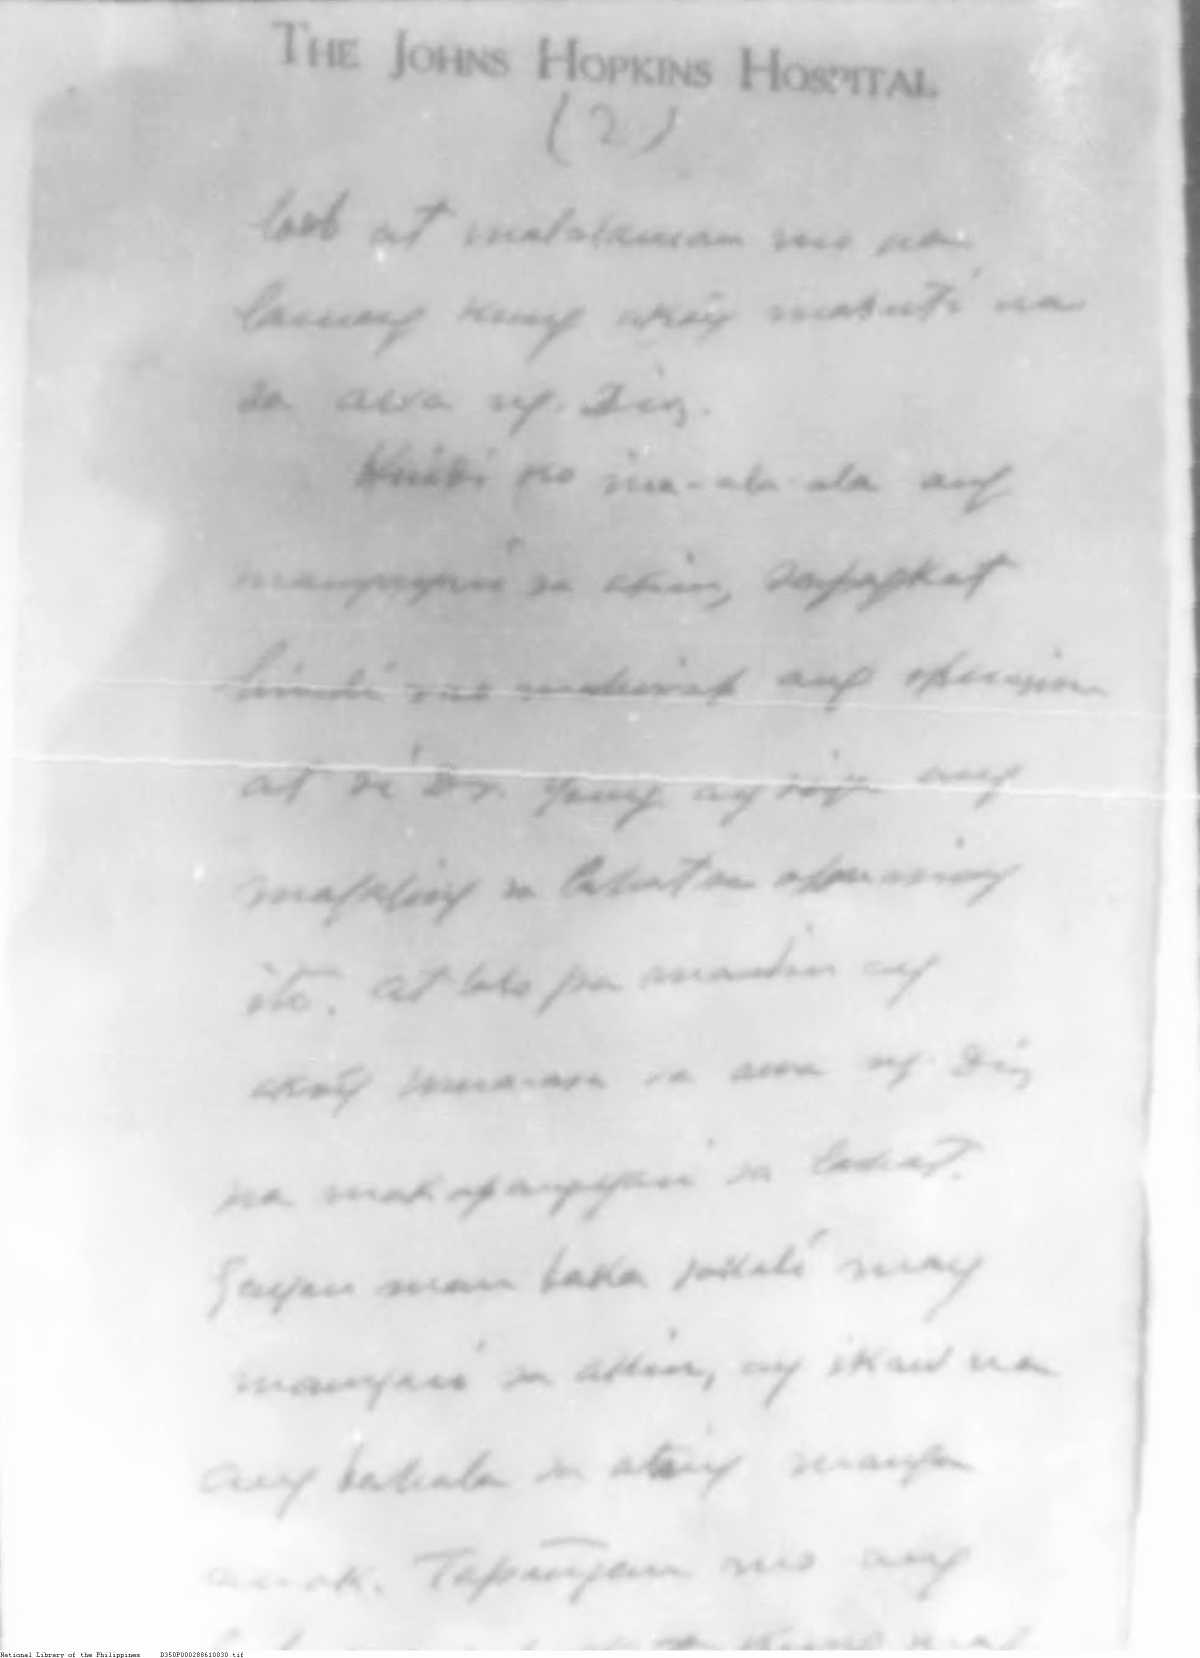 THE JOHNS HOPKINS HOSPITAL
(2)
loob at malalaman mo na
lamang kung ako'y mabuti na
sa awa ng Dios.
Hindi ko ina-ala-ala ang
mangyayari sa akin, sapagkat
hindi mahirap ang operasion
at si Dr. Young ay siya ang
sa lahat sa operasiong
ito. At lalo pa mandin ay
ako'y umaasa sa awa ng Dios
na makapangyari sa lahat.
Gayon man baka sakali may
mangyari sa akin, ay ikaw na
ang bahala sa ating manga
anak. Tapangan mo ang
National Library of the Philippines D350P000288610030.tif